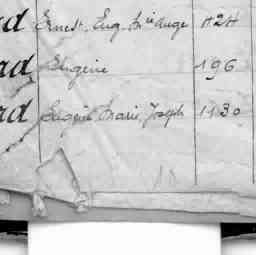 ad Ernest, Eug. Mie ange 1424
ad Eugénie 196
ad Eugène Marie, Joseph 1130